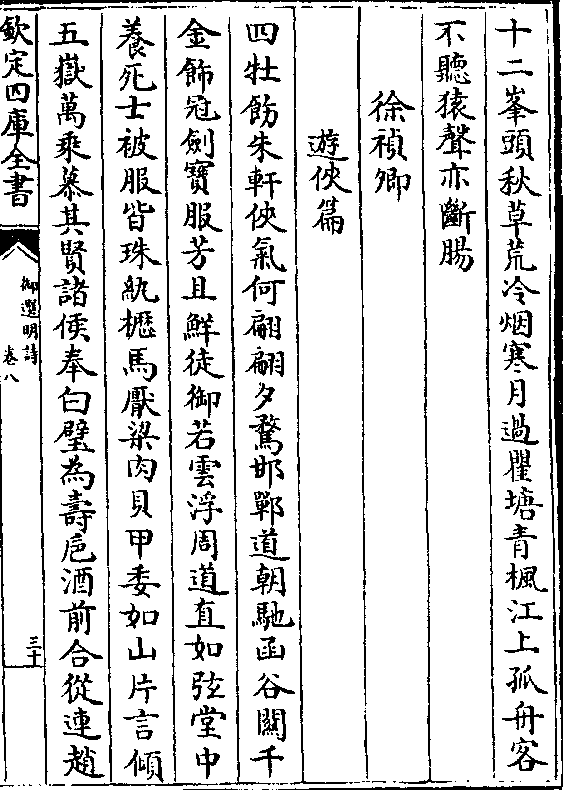 十二峯頭秋草荒冷烟寒月過瞿塘青楓江上孤舟客
不聽猿聲亦斷腸
徐禎卿
遊俠篇
四牡飭朱軒俠氣何翩翩夕騖邯鄲道朝馳函谷關千
金飾冠劍寶服芳且鮮徒御若雲浮周道直如弦堂中
養死士被服皆珠紈櫪馬厭粱肉貝甲委如山片言傾
五嶽萬乘慕其賢諸侯奉白璧為壽巵酒前合從連趙
欽定四庫全書
御選明詩
卷八
三十